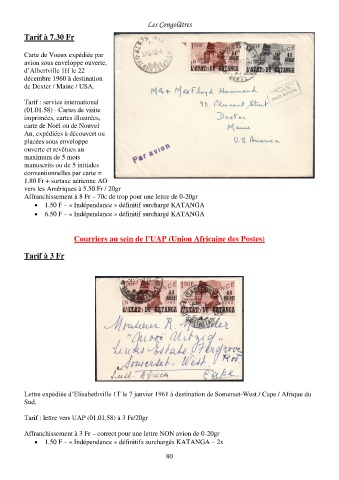 Les Congolâtres
Tarif à 7.30 Fr
Carte de Voeux expédiée par
avion sous enveloppe ouverte,
d'Albertville 1H le 22
décembre 1960 à destination
de Dexter / Maine / USA.
Tarif : service international
(01.01.58) - Cartes de visite
imprimées, cartes illustrées,
carte de Noël ou de Nouvel
An, expédiées à découvert ou
placées sous enveloppe
ouverte et revêtues au
maximum de 5 mots
manuscrits ou de 5 initiales
conventionnelles par carte =
1.80 Fr + surtaxe aérienne AO
vers les Amériques à 5.50 Fr / 20gr
Mr & Mrs Floyd Hammond
90. Pleasant Street
Dexter
Maine
U.S America
Par avion
Affranchissement à 8 Fr – 70c de trop pour une lettre de 0-20gr
• 1.50 F – « Indépendance » définitif surchargé KATANGA
• 6.50 F – « Indépendance » définitif surchargé KATANGA
Courriers au sein de l'UAP (Union Africaine des Postes)
Tarif à 3 Fr
L'ETAT DU KATANGA L'ETAT DU KATANGA
Monsieur R.
"Mooi Uitzig"
Estate
Somerset-West
Sud. Africa Cape
Lettre expédiée d'Elisabethville 1T le 7 janvier 1961 à destination de Somerset-West / Cape / Afrique du
Sud.
Tarif : lettre vers UAP (01.01.58) à 3 Fr/20gr
Affranchissement à 3 Fr – correct pour une lettre NON avion de 0-20gr
• 1.50 F – « Indépendance » définitifs surchargés KATANGA – 2x
80